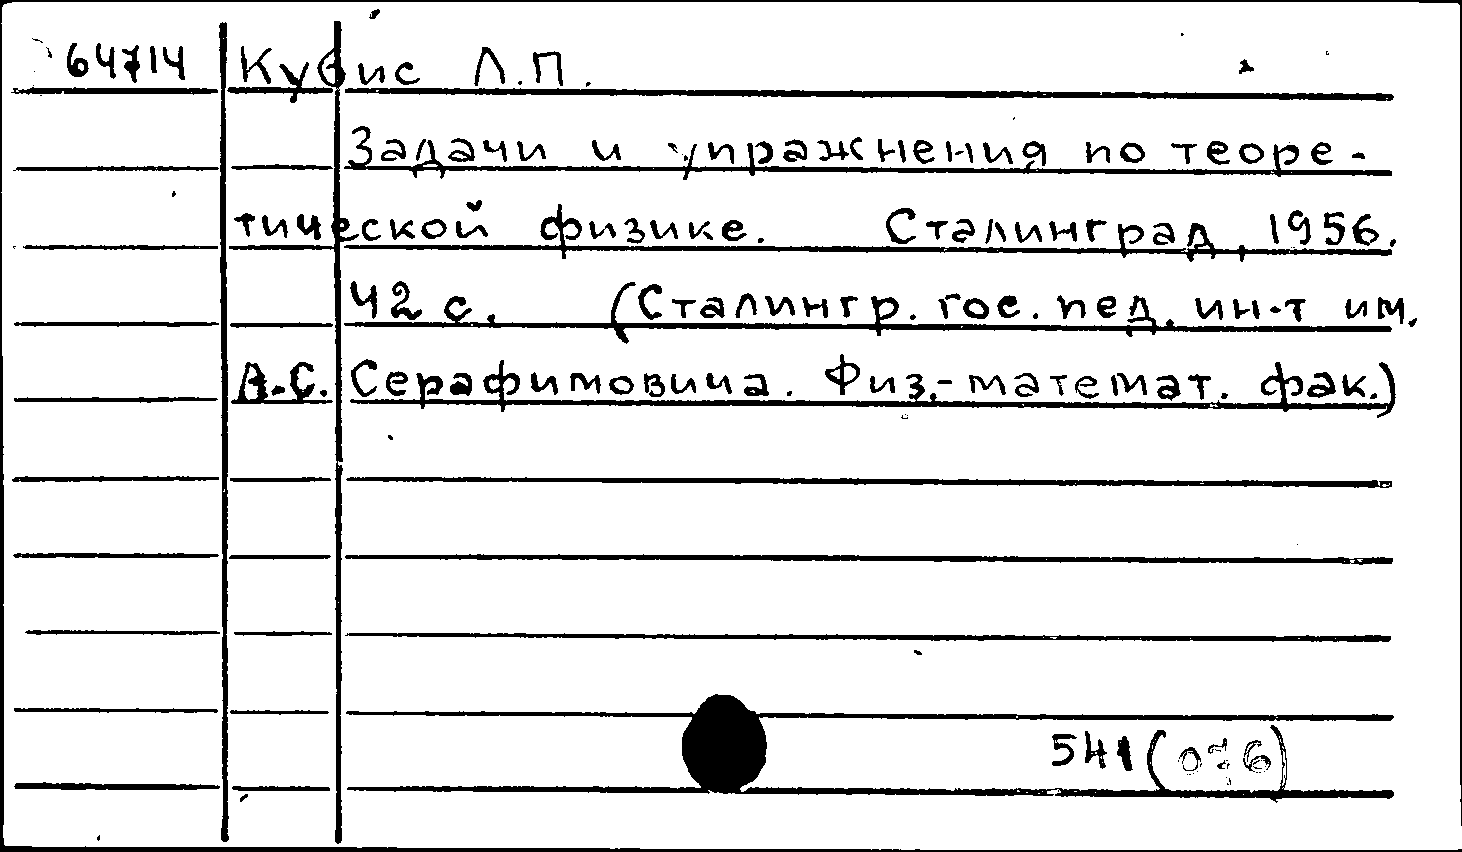 64714 Кубис Л.П.
Задачи и упражнения по теоре-
тической физике. Сталинград, 1956.
42 с. (Сталингр. гос. пед. ин-т им.
А.С. Серафимовича. Физ.-математ. фак.)
541